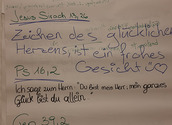 Jesus Sirach 13, 26
Zeichen des glücklichen
Herzens, ist ein frohes
Gesicht
Ps 16,2
Ich sage zum Herrn: "Du bist mein Herr; mein ganzes
Glück bist du allein."